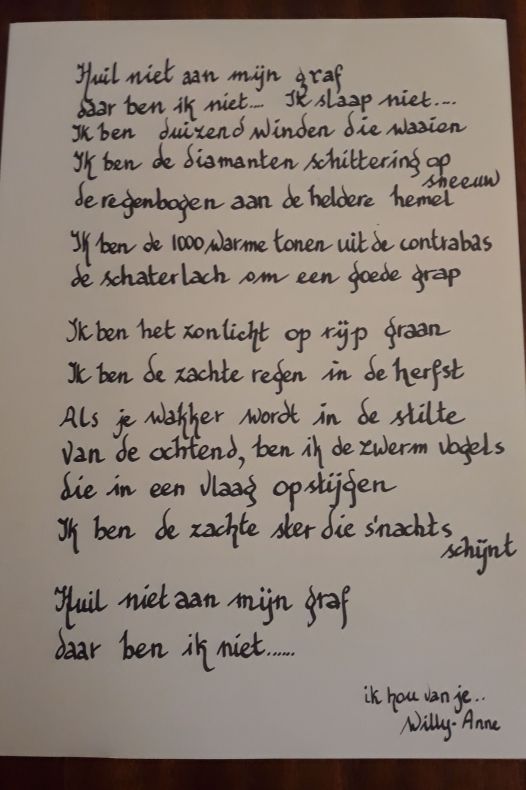 Huil niet aan mijn graf
daar ben ik niet.... Ik slaap niet....
Ik ben duizend winden die waaien
Ik ben de diamanten schittering op
sneeuw
de regenbogen aan de heldere hemel
Ik ben de 1000 warme tonen uit de contrabas
de schaterlach om een goede grap
Ik ben het zonlicht op rijp graan
Ik ben de zachte regen in de herfst
Als je wakker wordt in de stilte
van de ochtend, ben ik de zwerm vogels
die in een vlaag opstijgen
Ik ben de zachte ster die s'nachts
schijnt
Huil niet aan mijn graf
daar ben ik niet......
ik hou van je..
Willy-Anne